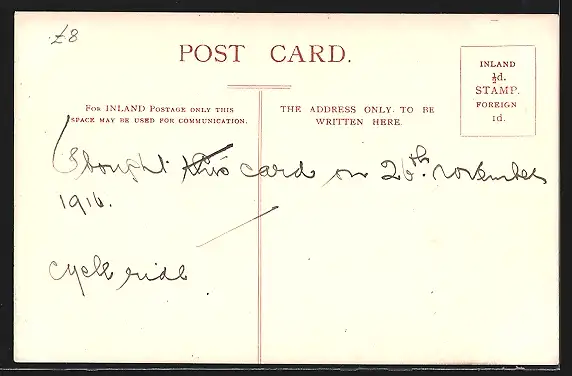 £8
POST CARD.
FOR INLAND POSTAGE ONLY THIS
SPACE MAY BE USED FOR COMMUNICATION.
THE ADDRESS ONLY TO BE
WRITTEN HERE.
INLAND
½d.
STAMP.
FOREIGN
1d.
I bought this card on 26th. november
1916.
cycle ride